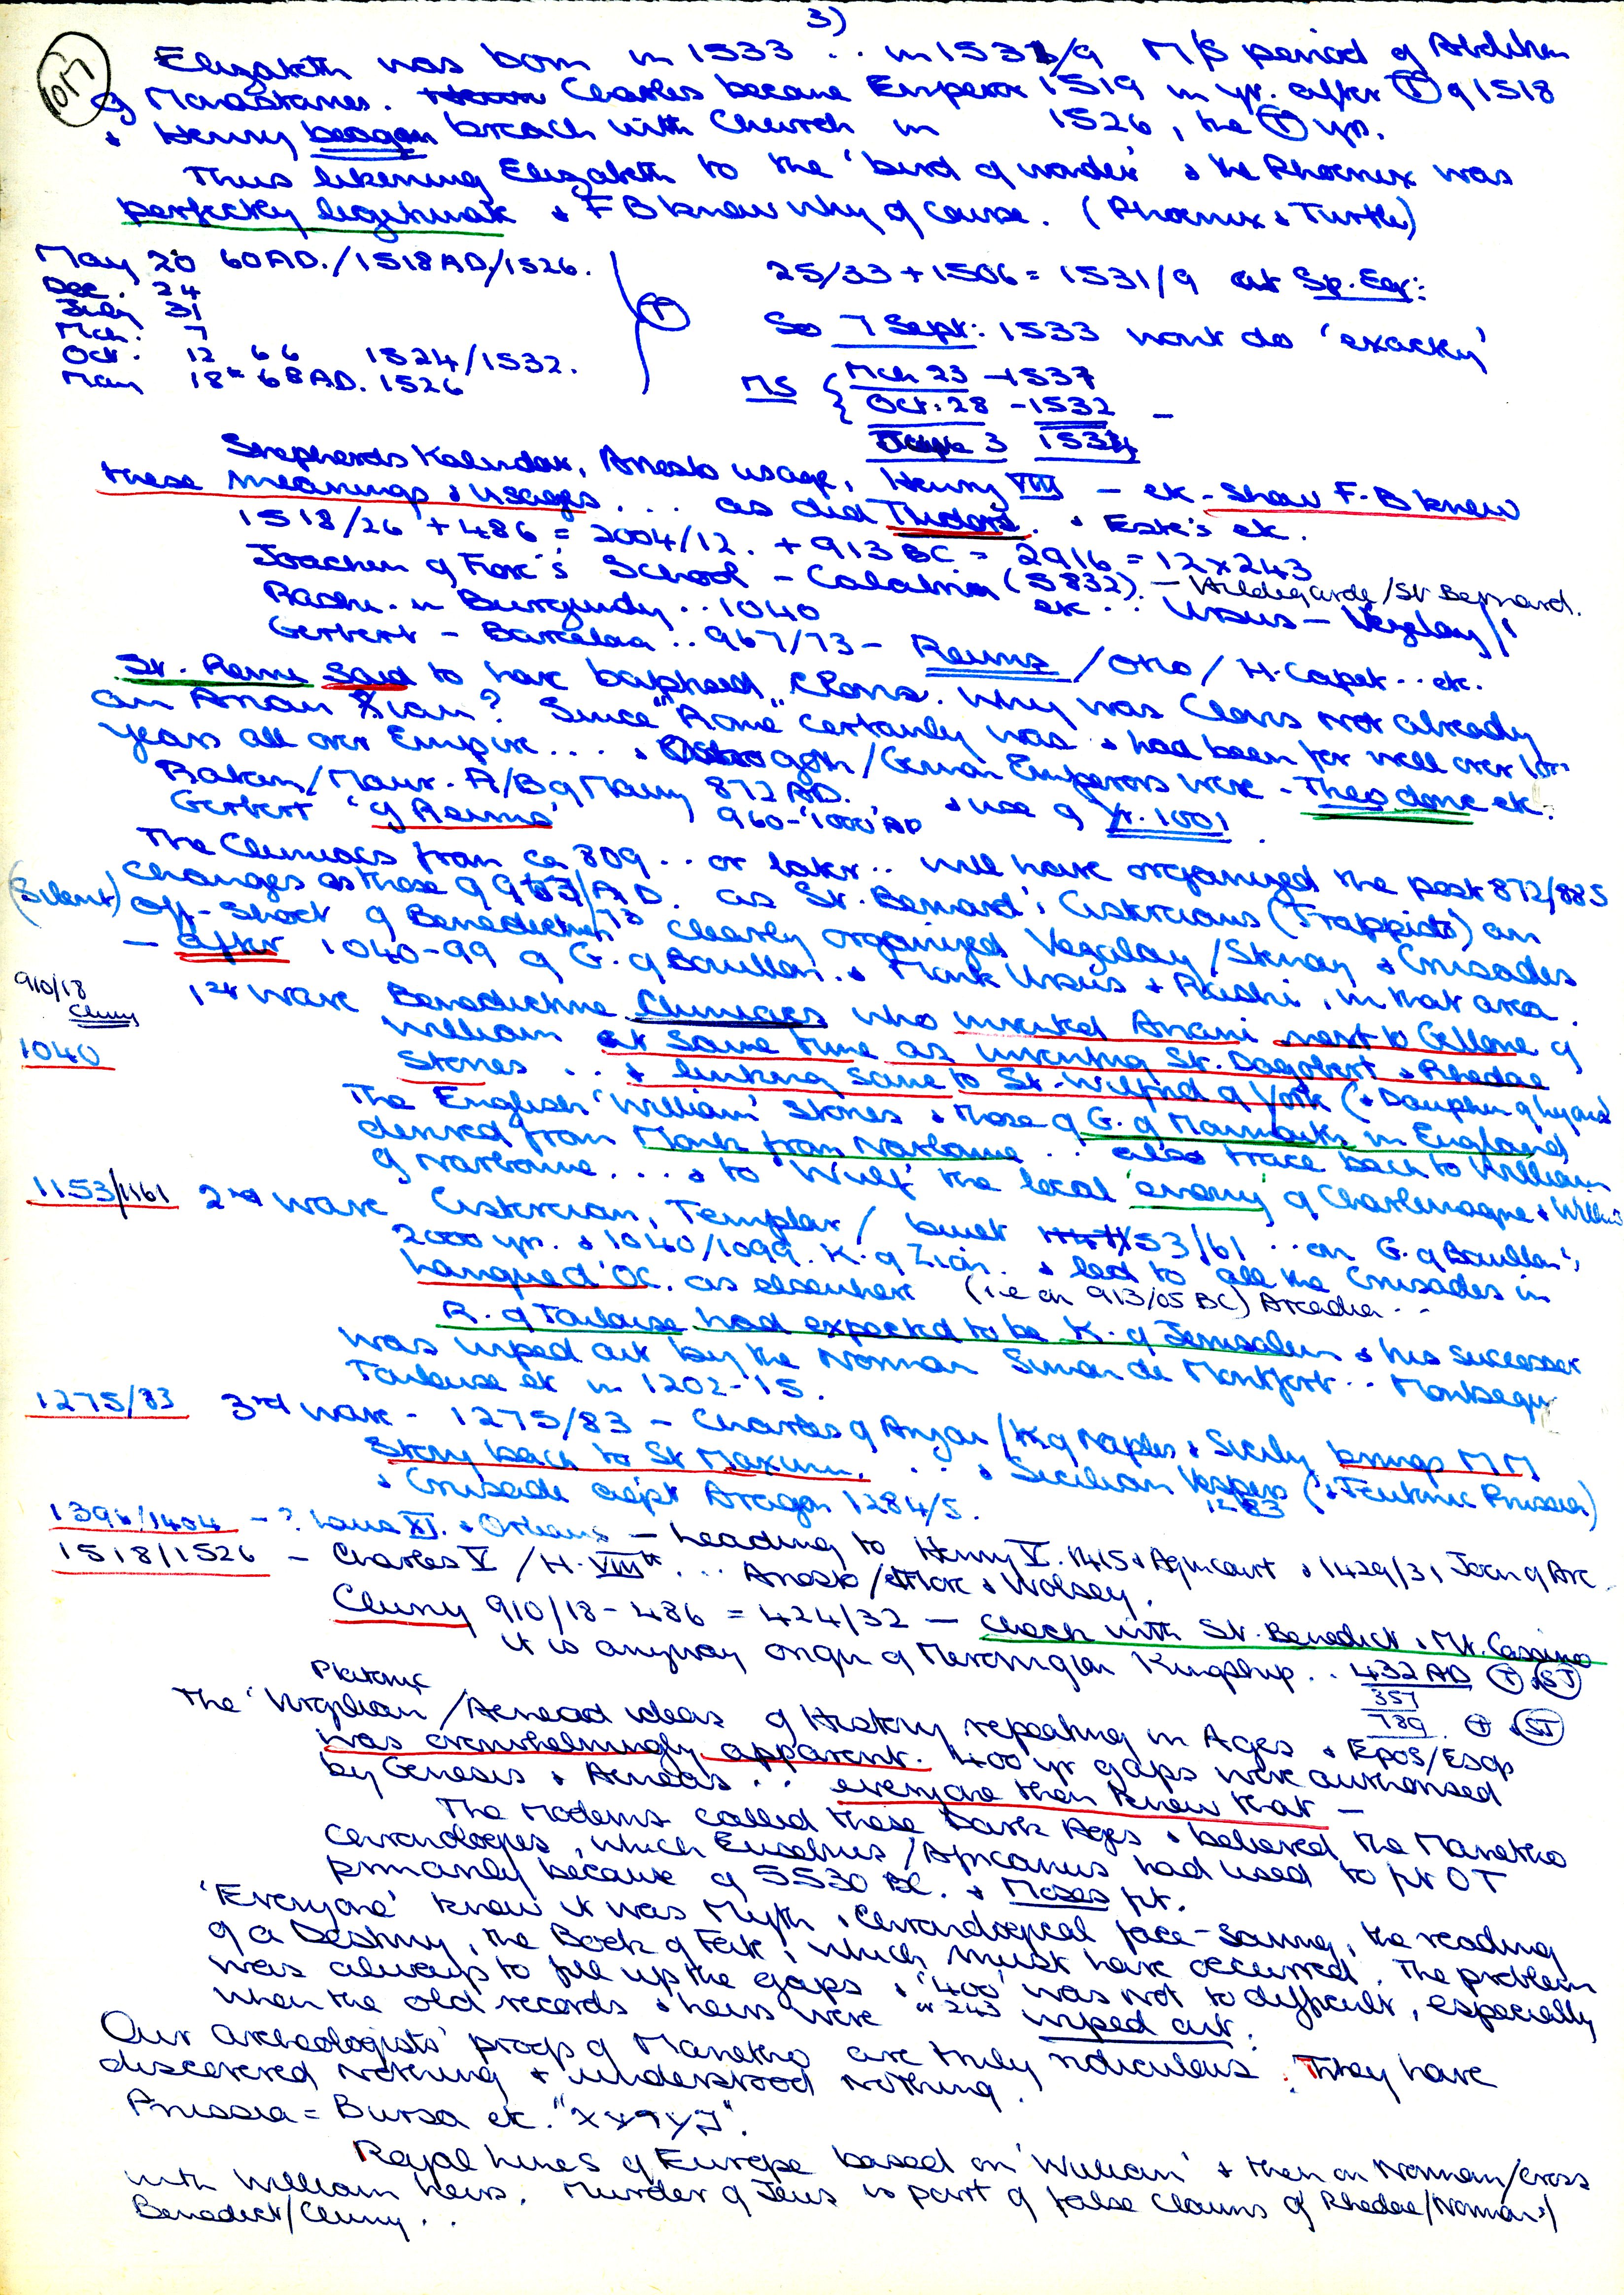 3)
Elizabeth was born in 1533 .. in 1531/9 M/S period of Abolition
of Monasteries. Charles became Emperor 1519 in yr. after (T) of 1518
& Henry began breach with Church in 1526, the (T) yr.
Thus likening Elizabeth to the 'bird of wonder' & the Phoenix was
perfectly legitimate & FB knew why of course. (Phoenix & Turtle)
May 20 60AD./1518AD/1526.
Dec. 24
July 31
Mch. 7
Oct. 12 66 1524/1532.
May 18th 68AD. 1526
(T)
25/33 + 1506 = 1531/9 at Sp. Eqx:
So 7 Sept: 1533 wont do 'exactly'
MS { Mch 23 - 1537
Oct: 28 - 1532 -
3 1534
Shepherds Kalendar, Ariosto usage, Henry VIII - etc - show F.B knew
these meanings & usages ... as did Tudors. & Este's etc.
1518/26 + 486 = 2004/12. + 913 BC = 2916 = 12x243
Joachim of Fiore's School - Calabria (5832) - Hildegarde/St. Bernard.
Rashi in Burgundy .. 1040 etc .. Ursus - Vezelay/
Gerbert - Barcelona .. 967/73 - Reims / Otto / H. Capet .. etc.
St. Remi said to have baptised Clovis. Why was Clovis not already
an Arian Xian? Since "Rome" certainly was & had been for well over 100
years all over Empire ... & Ostrogoth/German Emperors were - Theodoric etc.
Raban/Maur. A/B of Mainz 872 AD. , & use of Yr. 1001
Gerbert 'of Reims' 960-'1000' AD
The Cluniacs from ca 809 .. or later .. will have organized the post 872/885
changes as those of AD. as St. Bernard's Cistercians (Trappists) an
(Silent) off-shoot of Benedictines clearly organized Vezelay/Stenay & Crusades
- after 1040-99 of G. of Bouillon. & Monk Ursus & Rashi, in that area.
910/18
Cluny
1040
1st Wave Benedictine Cluniacs who invented Ariani next to Gellone of
William at same time as inventing St. Dagobert & Rhedae
Stories .. & linking same to St. Wilfrid of York (& Dauphin of
The English 'William' Stories & those of G. of Monmouth in England
derived from Monk from Narbonne .. also trace back to William
of Narbonne ... & to 'Wulf' the local enemy of Charlemagne &
1153/1161 2nd Wave Cistercian, Templar / built 53/61 .. on G. of Bouillon's
2000 yr. & 1040/1099. K. of Zion. & led to all the Crusades in
Langued'OC. as elsewhere (i.e on 913/05 BC) Arcadia ..
R. of Toulouse had expected to be K. of Jerusalem & his successor
was wiped out by the Norman Simon de Montfort .. Montsegur
Toulouse etc in 1202-15.
1275/83 3rd Wave - 1275/83 - Charles of Anjou / K of Naples & Sicily brings MM
Story back to St Maximin, .. & Sicilian Vespers (& Teutonic Prussia)
& Crusade against Aragon 1284/5. 1283
1396/1404 - ? Louis XI. & Orleans - Leading to Henry V. 1415 & Agincourt & 1429/31 Joan of Arc
1518/1526 - Charles V / H. VIIIth ... Ariosto / More & Wolsey.
Cluny 910/18 - 486 = 424/32 - Check with St. Benedict & Mt. Cassino
it is anyway origin of Merovingian Kingship .. 432 AD (T) (ST)
357
789 . (T) & (ST)
Platonic
The 'Virgilian / Aenead ideas of History repeating in Ages & EPOS/Esop
was overwhelmingly apparent. 400 yr gaps were authorised
by Genesis & Aeneas .. everyone then knew that -
The Moderns called these Dark Ages & believed the Manetho
chronologies, which Eusebius/Africanus had used to fit OT
primarily because of 5530 BC. & Moses fit.
'Everyone' knew it was Myth & Chronological face-saving, the reading
of a Destiny, the Book of Fate, which must have occurred. The problem
was always to fill up the gaps & '400' was not to difficult, especially
or 243
when the old records & heirs were wiped out.
Our archeologists' proofs of Manetho are truly ridiculous. They have
discovered nothing & understood nothing.
Prussia = Bursa etc.
Royal lines of Europe based on 'William' & then on Norman/cross
with William heirs. Murder of Jews is part of false claims of Rhedae/Norman's/
Benedict/Cluny ..